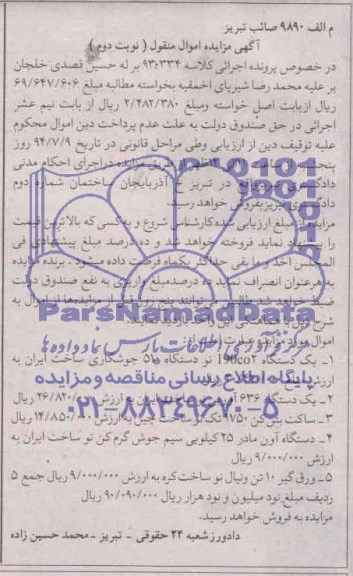 م الف ۹۸۹۰ صائب تبریز
آگهی مزایده اموال منقول ( نوبت دوم )
در خصوص پرونده اجرائی کلاسه ۹۳۰۳۳۴ بر له حسین قصدی خلجان
بر علیه محمد رضا شیرپای اخمقیه بخواسته مطالبه مبلغ ۶۹/۶۴۷/۶۰۶
ریال ازبابت اصل خواسته ومبلغ ۲/۴۸۲/۳۸۰ ریال از بابت نیم عشر
اجرائی در حق صندوق دولت به علت عدم پرداخت دین اموال محکوم
علیه توقیف دین از ارزیابی وطی مراحل قانونی در تاریخ ۹۴/۷/۹ روز
پنج از طریق مزایده دراجرای احکام مدنی
در تبریز خ آذربایجان ساختمان شماره دوم
تبریز بفروش خواهد رسید.
مزایده از مبلغ ارزیابی شده کارشناس شروع و به کسی که بالاترین قیمت
را پیشنهاد نماید فروخته خواهد شد و ده درصد مبلغ پیشنهادی فی
المجلس اخذ و ما بقی حداکثر یکماه فرصت داده میشود . برنده مزایده
به هر عنوان انصراف نماید ده درصد مبلغ واریزی به نفع صندوق دولت
ضبط خواهد شد طالبین می توانند پنج روز قبل از مزایده از اموال به
شرح ذیل با هماهنگی این واحد بازدید نمایند.
اموال مورد مزایده عبارت
ParsNamadData
مرکز فرآوری اطلاعات پارس نماد داده ها
۱- یک دستگاه 190co2 نو دستگاه جوشکاری ساخت ایران به
ارزش
پایگاه اطلاع رسانی مناقصه و مزایده
۲- یک دستگاه ۶۳۶ ایران به ارزش ریال
۰۲۱-۸۸۳۴۹۶۷۰-۵
۳- ساکت بتن کن ۹۷۵۰ تک نو ساخت چین به ارزش ریال
۴- دستگاه آون مادر ۲۵ کیلویی سیم جوش گرم کن نو ساخت ایران به
ارزش ۹/۰۰۰/۰۰۰ ریال
۵- ورق گیر ۱۰ تن ونیال نو ساخت کره به ارزش ۹/۰۰۰/۰۰۰ ریال جمع ۵
ردیف مبلغ نود میلیون و نود هزار ریال ۹۰/۰۹۰/۰۰۰ ریال
مزایده به فروش خواهد رسید.
دادورز شعبه ۲۴ حقوقی - تبریز - محمد حسین زاده